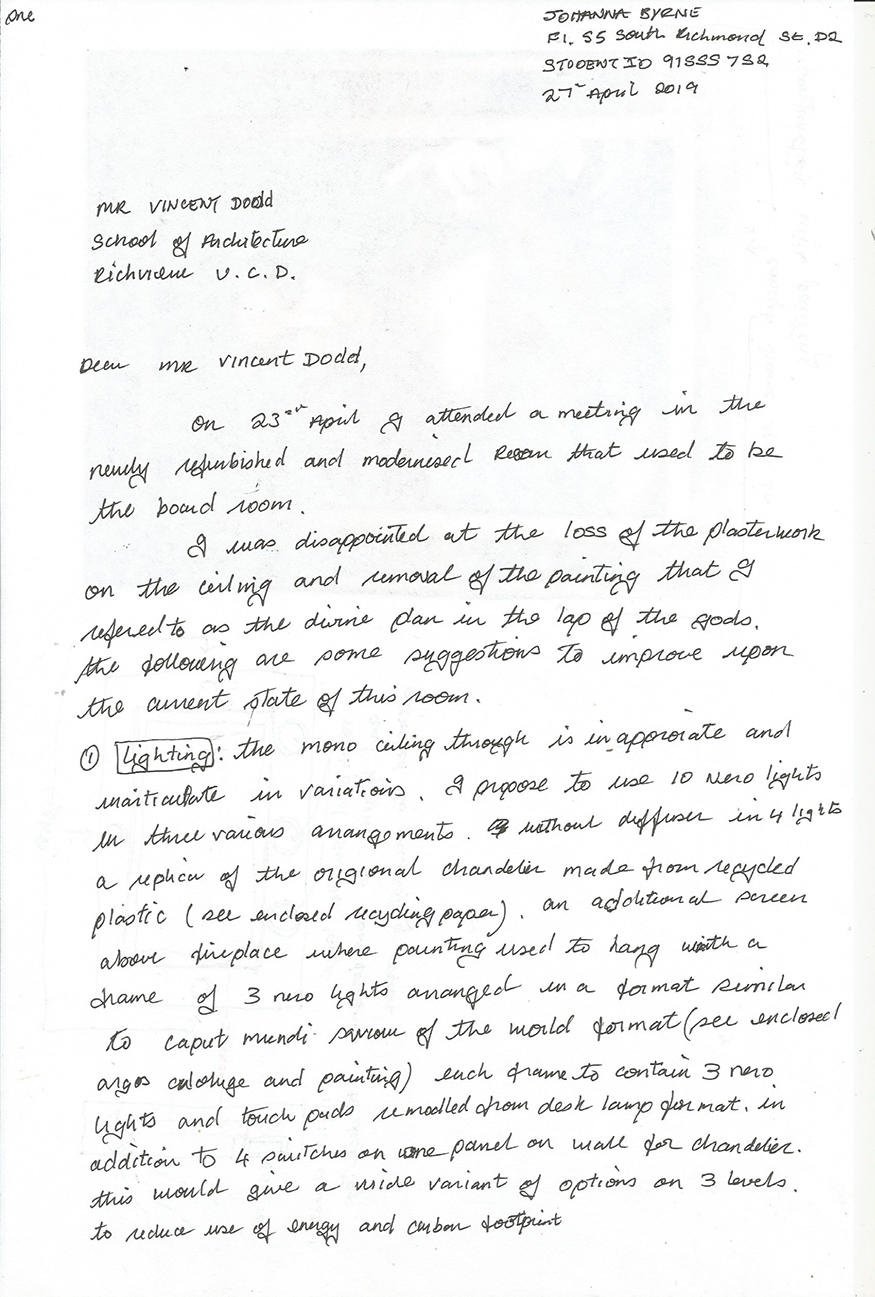 one
JOHANNA BYRNE
Fl. 55 South Richmond St. D2
STUDENT ID 91555732
27th April 2019
MR VINCENT Dodd
School of Architecture
Richview U.C.D.
Dear MR Vincent Dodd,
On 23rd April I attended a meeting in the
newly refurbished and modernised Room that used to be
the board room.
I was disappointed at the loss of the plasterwork
on the ceiling and removal of the painting that I
refered to as the divine plan in the lap of the gods.
the following are some suggestions to improve upon
the current state of this room.
① Lighting: the mono ceiling through is in approiate and
inarticulate in variations. I propose to use 10 Nero lights
in three various arrangements. without diffuser in 4 lights
a replica of the origional chandelier made from recycled
plastic (see enclosed recycling paper). an additional screen
above fireplace where painting used to hang with a
frame of 3 nero lights arranged in a format similar
to caput mundi saviour of the world format (see enclosed
argos and painting) each frame to contain 3 nero
lights and touch pads remodled from desk lamp format. in
addition to 4 switches on one panel on wall for chandelier.
this would give a wide variant of options on 3 levels.
to reduce use of energy and carbon footprint